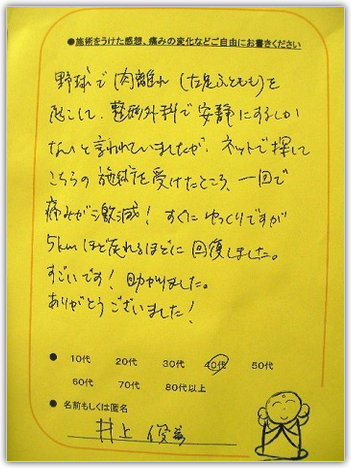 ●施術をうけた感想、痛みの変化などご自由にお書きください
野球で肉離れ(左足ふともも)を
起こして、整形外科で安静にするしか
ないと言われていましたが、ネットで探して
こちらの施術を受けたところ、一回で
痛みが激減!すぐにゆっくりですが
5kmほど走れるほどに回復しました。
すごいです!助かりました。
ありがとうございました!
● 10代 20代 30代 40代 50代
60代 70代 80代以上
● 名前もしくは匿名
井上